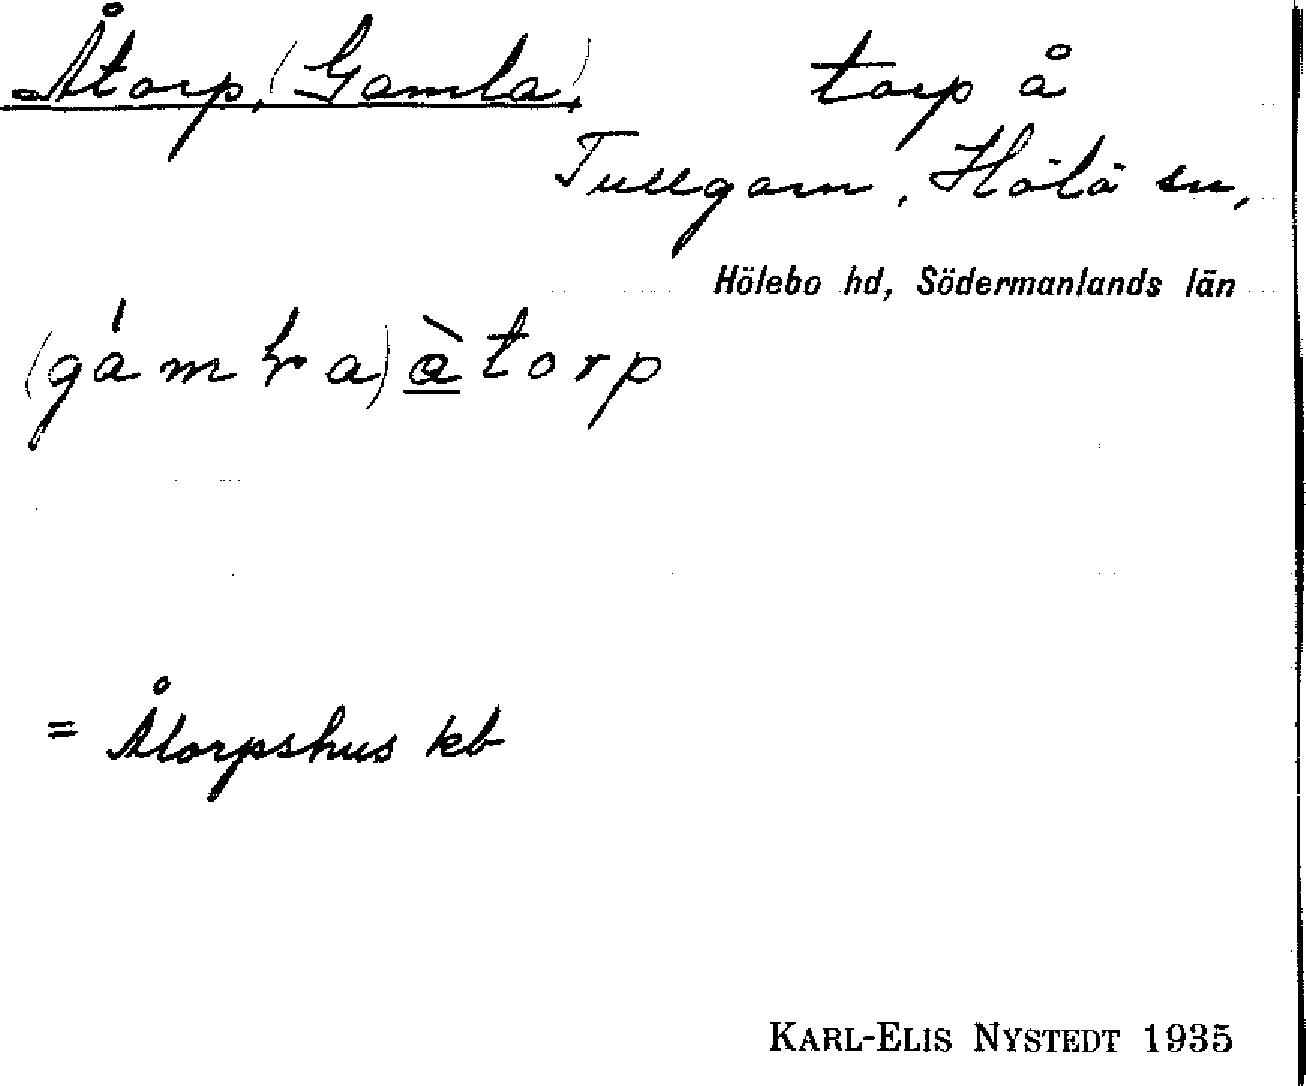 Åtorp, (Gamla) torp å
Tullgarn, Hölö sn,
Hölebo hd, Södermanlands län
(gámła) àtorp
= Åtorpshus kb
KARL-ELIS NYSTEDT 1935